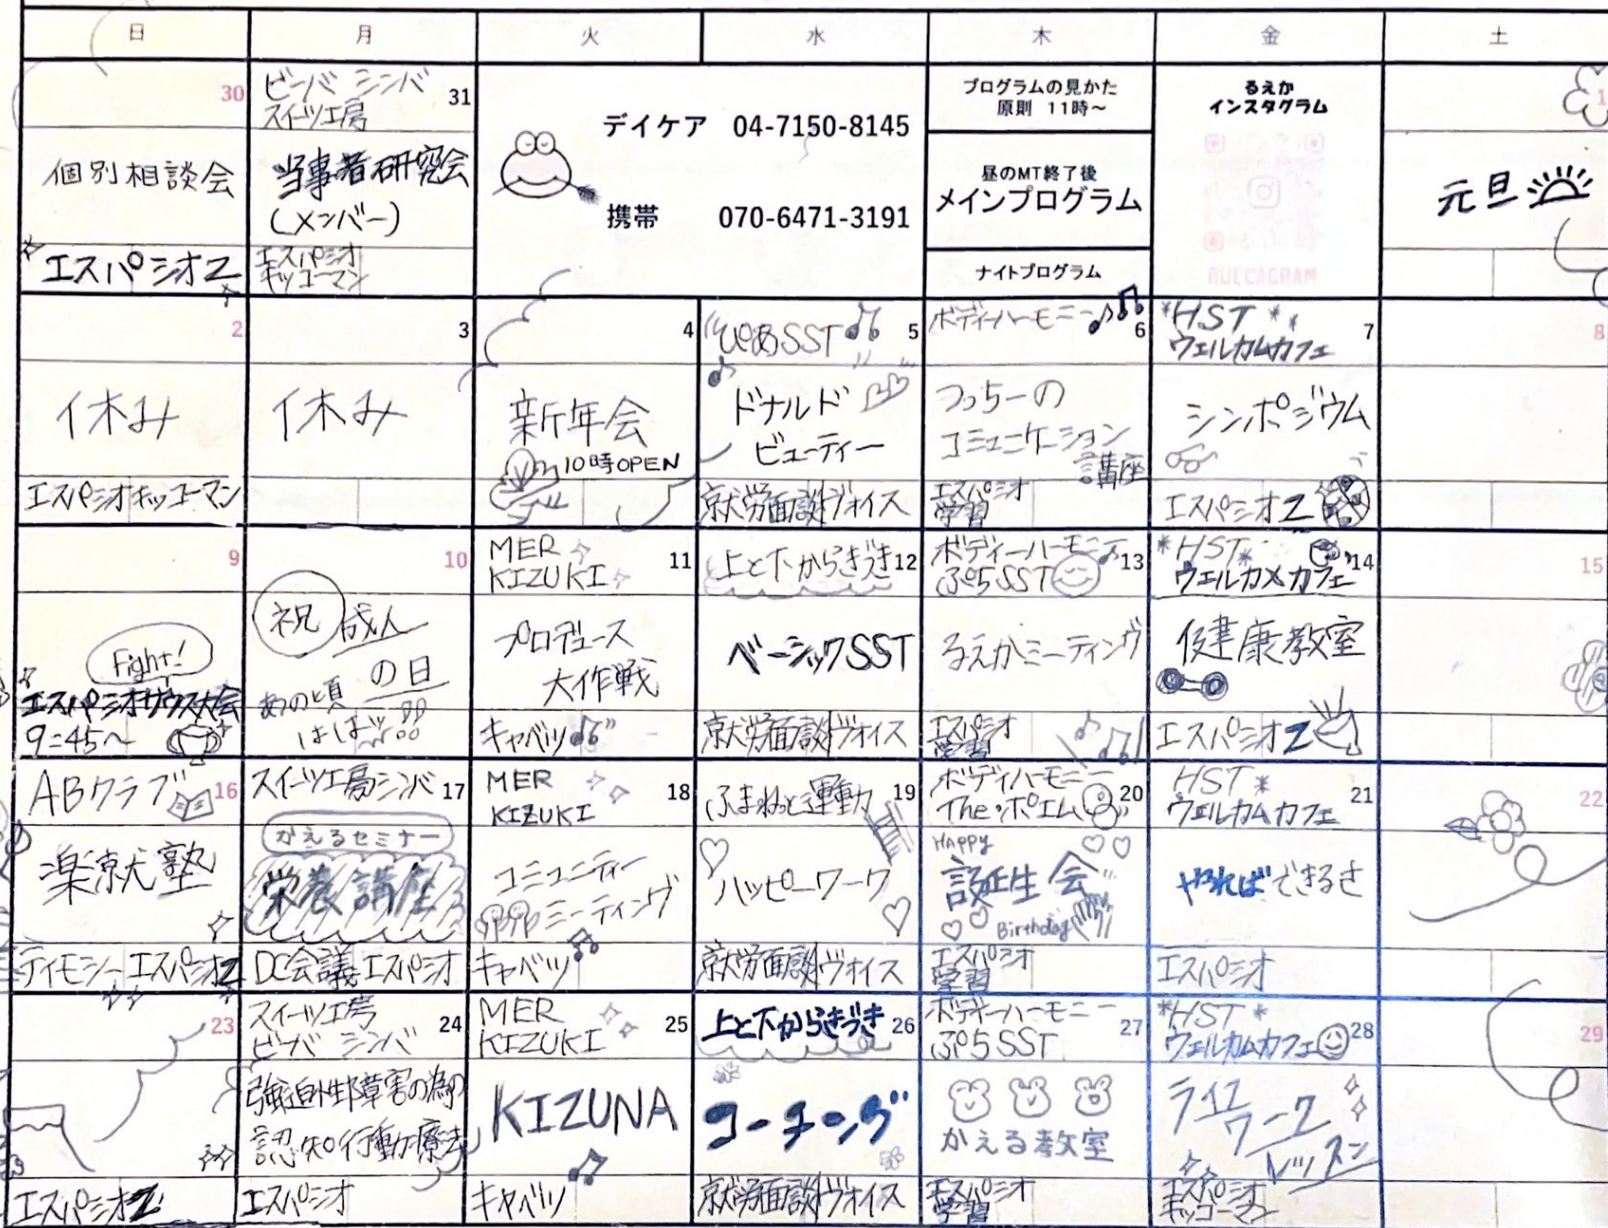 日 月 火 水 木 金 土
30
個別相談会
エスパシオZ
ビーバ シンバ 31
スイーツ工房
当事者研究会
(メンバー)
エスパシオ
キッコーマン
デイケア 04-7150-8145
携帯 070-6471-3191
プログラムの見かた
原則 11時～
昼のMT終了後
メインプログラム
ナイトプログラム
るえか
インスタグラム
RUECAGRAM
1
元旦
2
休み
エスパシオキッコーマン
3
休み
4
新年会
10時OPEN
ぴあSST 5
ドナルド
ビューティー
就労面談 ヴォイス
ボディーハーモニー 6
つっちーの
コミュニケーション
講座
エスパシオ
学習
*HST** 7
ウェルカムカフェ
シンポジウム
エスパシオZ
8
9
Fight!
エスパシオサウス大会
9:45～
10
祝 成人
の日
あの頃
はば
MER 11
KIZUKI
プロデュース
大作戦
キャベツ
上と下からきづき 12
ベーシックSST
就労面談 ヴォイス
ボディーハーモニー 13
ぷちSST
るえかミーティング
エスパシオ
学習
*HST* 14
ウェルカムカフェ
健康教室
エスパシオZ
15
ABクラブ 16
楽就塾
ティモシー エスパシオZ
スイーツ工房シンバ 17
かえるセミナー
栄養講座
DC会議 エスパシオ
MER 18
KIZUKI
コミュニティー
ミーティング
キャベツ
ふまねっと運動 19
ハッピーワーク
就労面談 ヴォイス
ボディハーモニー 20
The・ポエム
HAPPY
誕生会
Birthday
エスパシオ
学習
HST* 21
ウェルカムカフェ
やればできるさ
エスパシオ
22
23
エスパシオZ
スイーツ工房 24
ビーバ シンバ
強迫性障害の為の
認知行動療法
エスパシオ
MER 25
KIZUKI
KIZUNA
キャベツ
上と下からきづき 26
コーチング
就労面談 ヴォイス
ボディーハーモニー 27
ぷちSST
かえる教室
エスパシオ
学習
*HST* 28
ウェルカムカフェ
ライフ
ワーク
レッスン
エスパシオ
キッコーマン
29